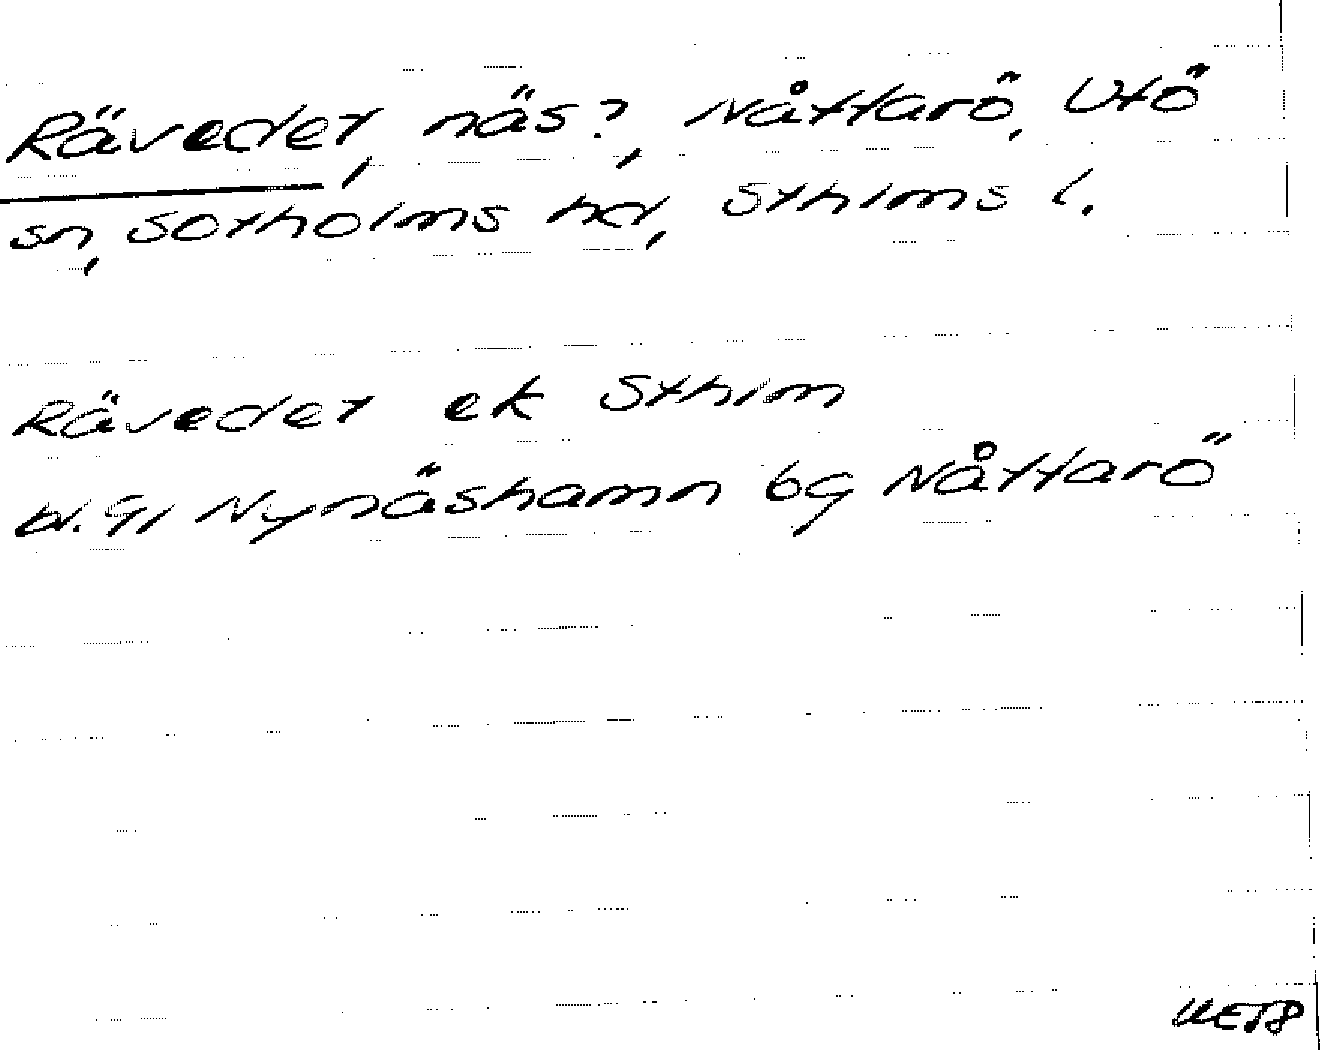 Rävedet, näs?, Nåttarö, Utö
sn, Sotholms hd, Sthlms l.
Rävedet ek Sthlm
bl. 91 Nynäshamn 6g Nåttarö